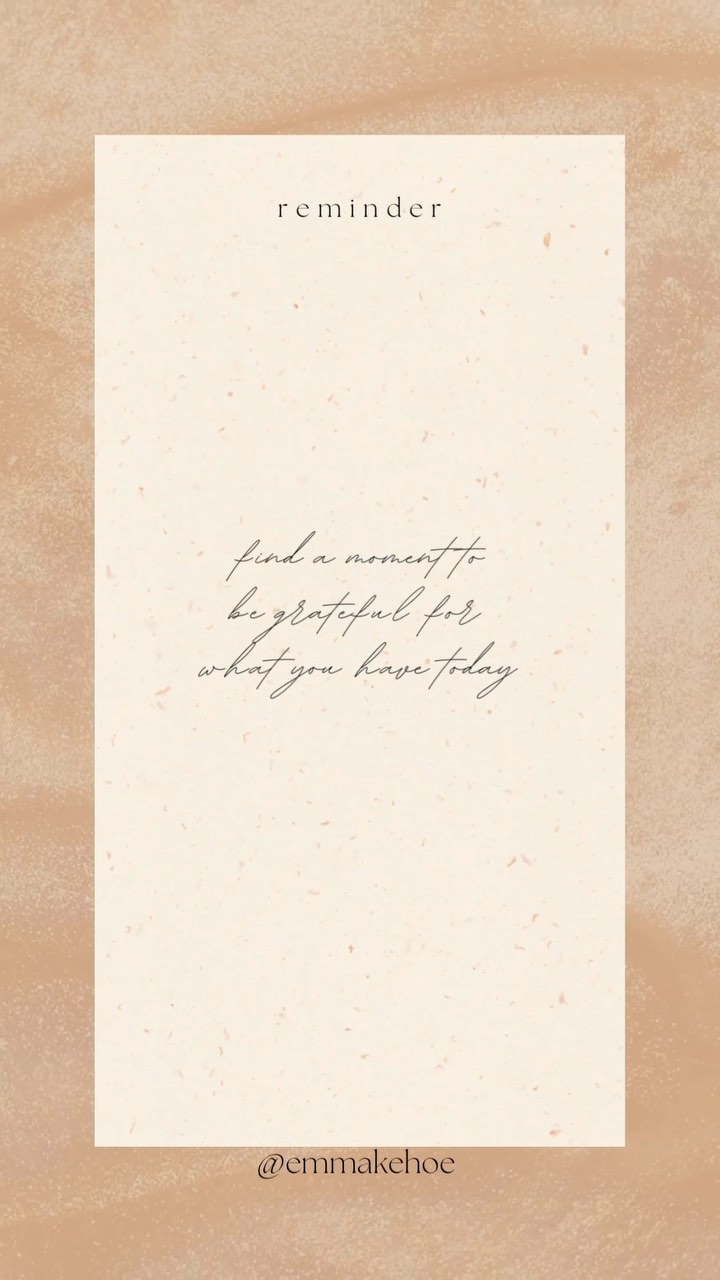 reminder
find a moment to
be grateful for
what you have today
@emmakehoe